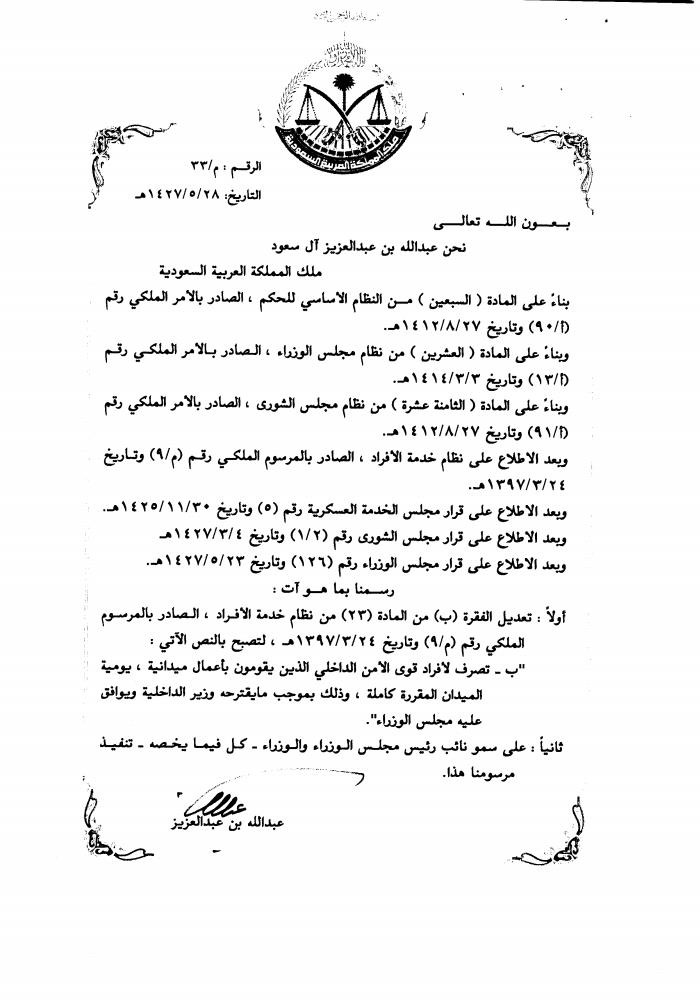 بسم الله الرحمن الرحيم
ملك المملكة العربية السعودية
الرقم : م/٣٣
التاريخ: ١٤٢٧/٥/٢٨هـ
بـعـــون اللـــه تعالـــى
نحن عبدالله بن عبدالعزيز آل سعود
ملك المملكة العربية السعودية
بناءً على المادة ( السبعين ) مـــن النظام الأساسي للحكم ، الصادر بالأمر الملكي رقم
(أ/٩٠) وتاريخ ١٤١٢/٨/٢٧هـ.
وبناءً على المادة ( العشرين ) من نظام مجلس الوزراء ، الـصادر بـالأمر الملكـي رقـم
(أ/١٣) وتاريخ ١٤١٤/٣/٣هـ.
وبناءً على المادة ( الثامنة عشرة ) من نظام مجلس الشورى ، الصادر بالأمر الملكي رقم
(أ/٩١) وتاريخ ١٤١٢/٨/٢٧هـ.
وبعد الاطلاع على نظام خدمة الأفراد ، الصادر بالمرسوم الملكي رقـم (م/٩) وتـاريخ
١٣٩٧/٣/٢٤هـ.
وبعد الاطلاع على قرار مجلس الخدمة العسكرية رقم (٥) وتاريخ ١٤٢٥/١١/٣٠هـ.
وبعد الاطلاع على قرار مجلس الشورى رقم (١/٢) وتاريخ ١٤٢٧/٣/٤هـ
وبعد الاطلاع على قرار مجلس الوزراء رقم (١٢٦) وتاريخ ١٤٢٧/٥/٢٣هـ.
رسـمنا بما هـو آت :
أولاً : تعديل الفقرة (ب) من المادة (٢٣) من نظام خدمة الأفـراد ، الـصادر بالمرسوم
الملكي رقم (م/٩) وتاريخ ١٣٩٧/٣/٢٤هـ ، لتصبح بالنص الآتي :
"ب ـ تصرف لأفراد قوى الأمن الداخلي الذين يقومون بأعمال ميدانية ، يومية
الميدان المقررة كاملة ، وذلك بموجب مايقترحه وزير الداخلية ويوافق
عليه مجلس الوزراء".
ثانياً : على سمو نائب رئيس مجلـس الـوزراء والـوزراء ـ كـل فيمـا يخـصه ـ تنفيـذ
مرسومنا هذا.
عبدالله بن عبدالعزيز